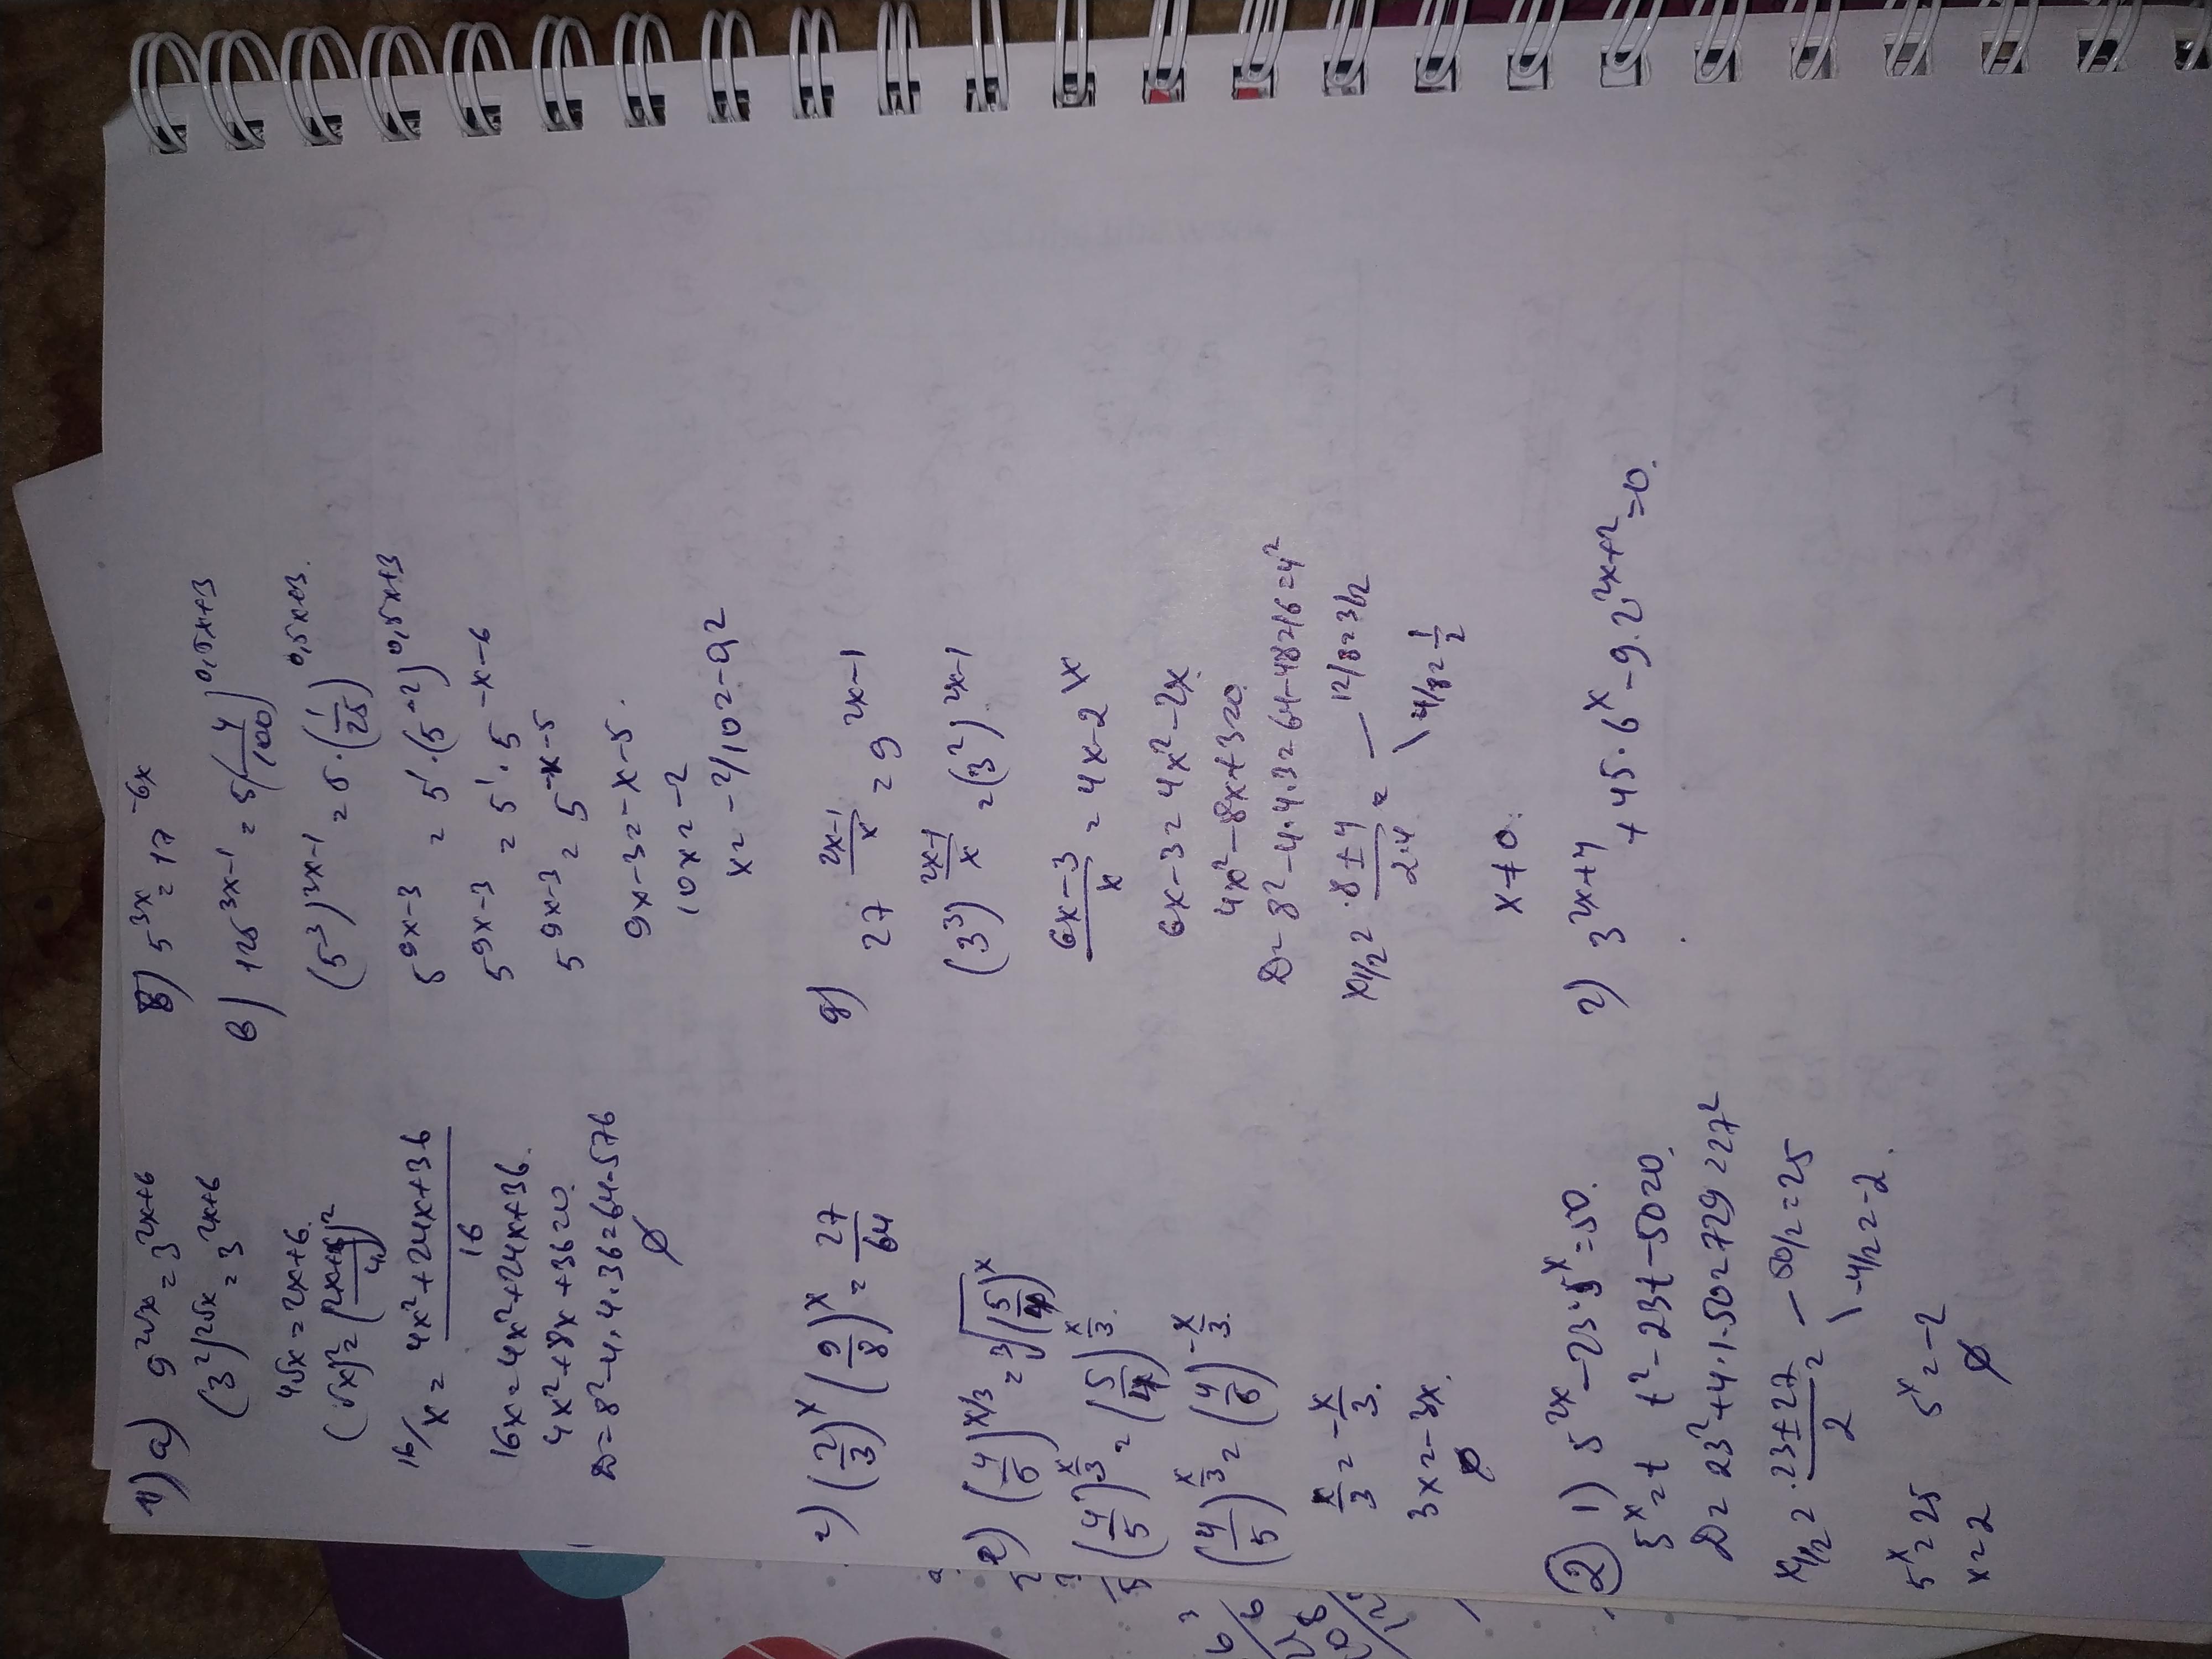 1) а) 9^{2√x} = 3^{2x+6}
(3²)^{2√x} = 3^{2x+6}
4√x = 2x+6.
(√x)² = (\frac{2x+6}{4})²
16/ x = \frac{4x²+24x+36}{16}
16x = 4x²+24x+36.
4x²+8x+36=0.
D = 8²-4·4·36=64-576
∅
б) 5^{3x} = 17^{-6x}
в) 125^{3x-1} = 5(\frac{4}{100})^{0,5x+3}
(5³)^{3x-1} = 5·(\frac{1}{25})^{0,5x+3}.
5^{9x-3} = 5¹·(5^{-2})^{0,5x+3}
5^{9x-3} = 5¹·5^{-x-6}
5^{9x-3} = 5^{-x-5}
9x-3=-x-5.
10x=-2
x=-2/10=-0,2
г) (\frac{2}{3})^x (\frac{9}{8})^x = \frac{27}{64}
е) (\frac{4}{5})^{x/3} = ³√(\frac{5}{4})^x
(\frac{4}{5})^{\frac{x}{3}} = (\frac{5}{4})^{\frac{x}{3}}.
(\frac{4}{5})^{\frac{x}{3}} = (\frac{4}{5})^{-\frac{x}{3}}.
\frac{x}{3} = -\frac{x}{3}.
3x=-3x.
∅
д) 27^{\frac{2x-1}{x}} = 9^{2x-1}
(3³)^{\frac{2x-1}{x}} = (3²)^{2x-1}
\frac{6x-3}{x} = 4x-2 \x
6x-3=4x²-2x
4x²-8x+3=0.
D=8²-4·4·3=64-48=16=4²
x1/2=\frac{8±4}{2·4} = 12/8=3/2
4/8=\frac{1}{2}
x≠0.
② 1) 5^{2x}-23·5^x=50.
5^x=t t²-23t-50=0.
D=23²+4·1·50=729=27²
x1/2=\frac{23±27}{2} = 50/2=25
-4/2=-2.
5^x=25 5^x=-2
x=2 ∅
2) 3^{2x+4}+45·6^x-9·2^{2x+2}=0.